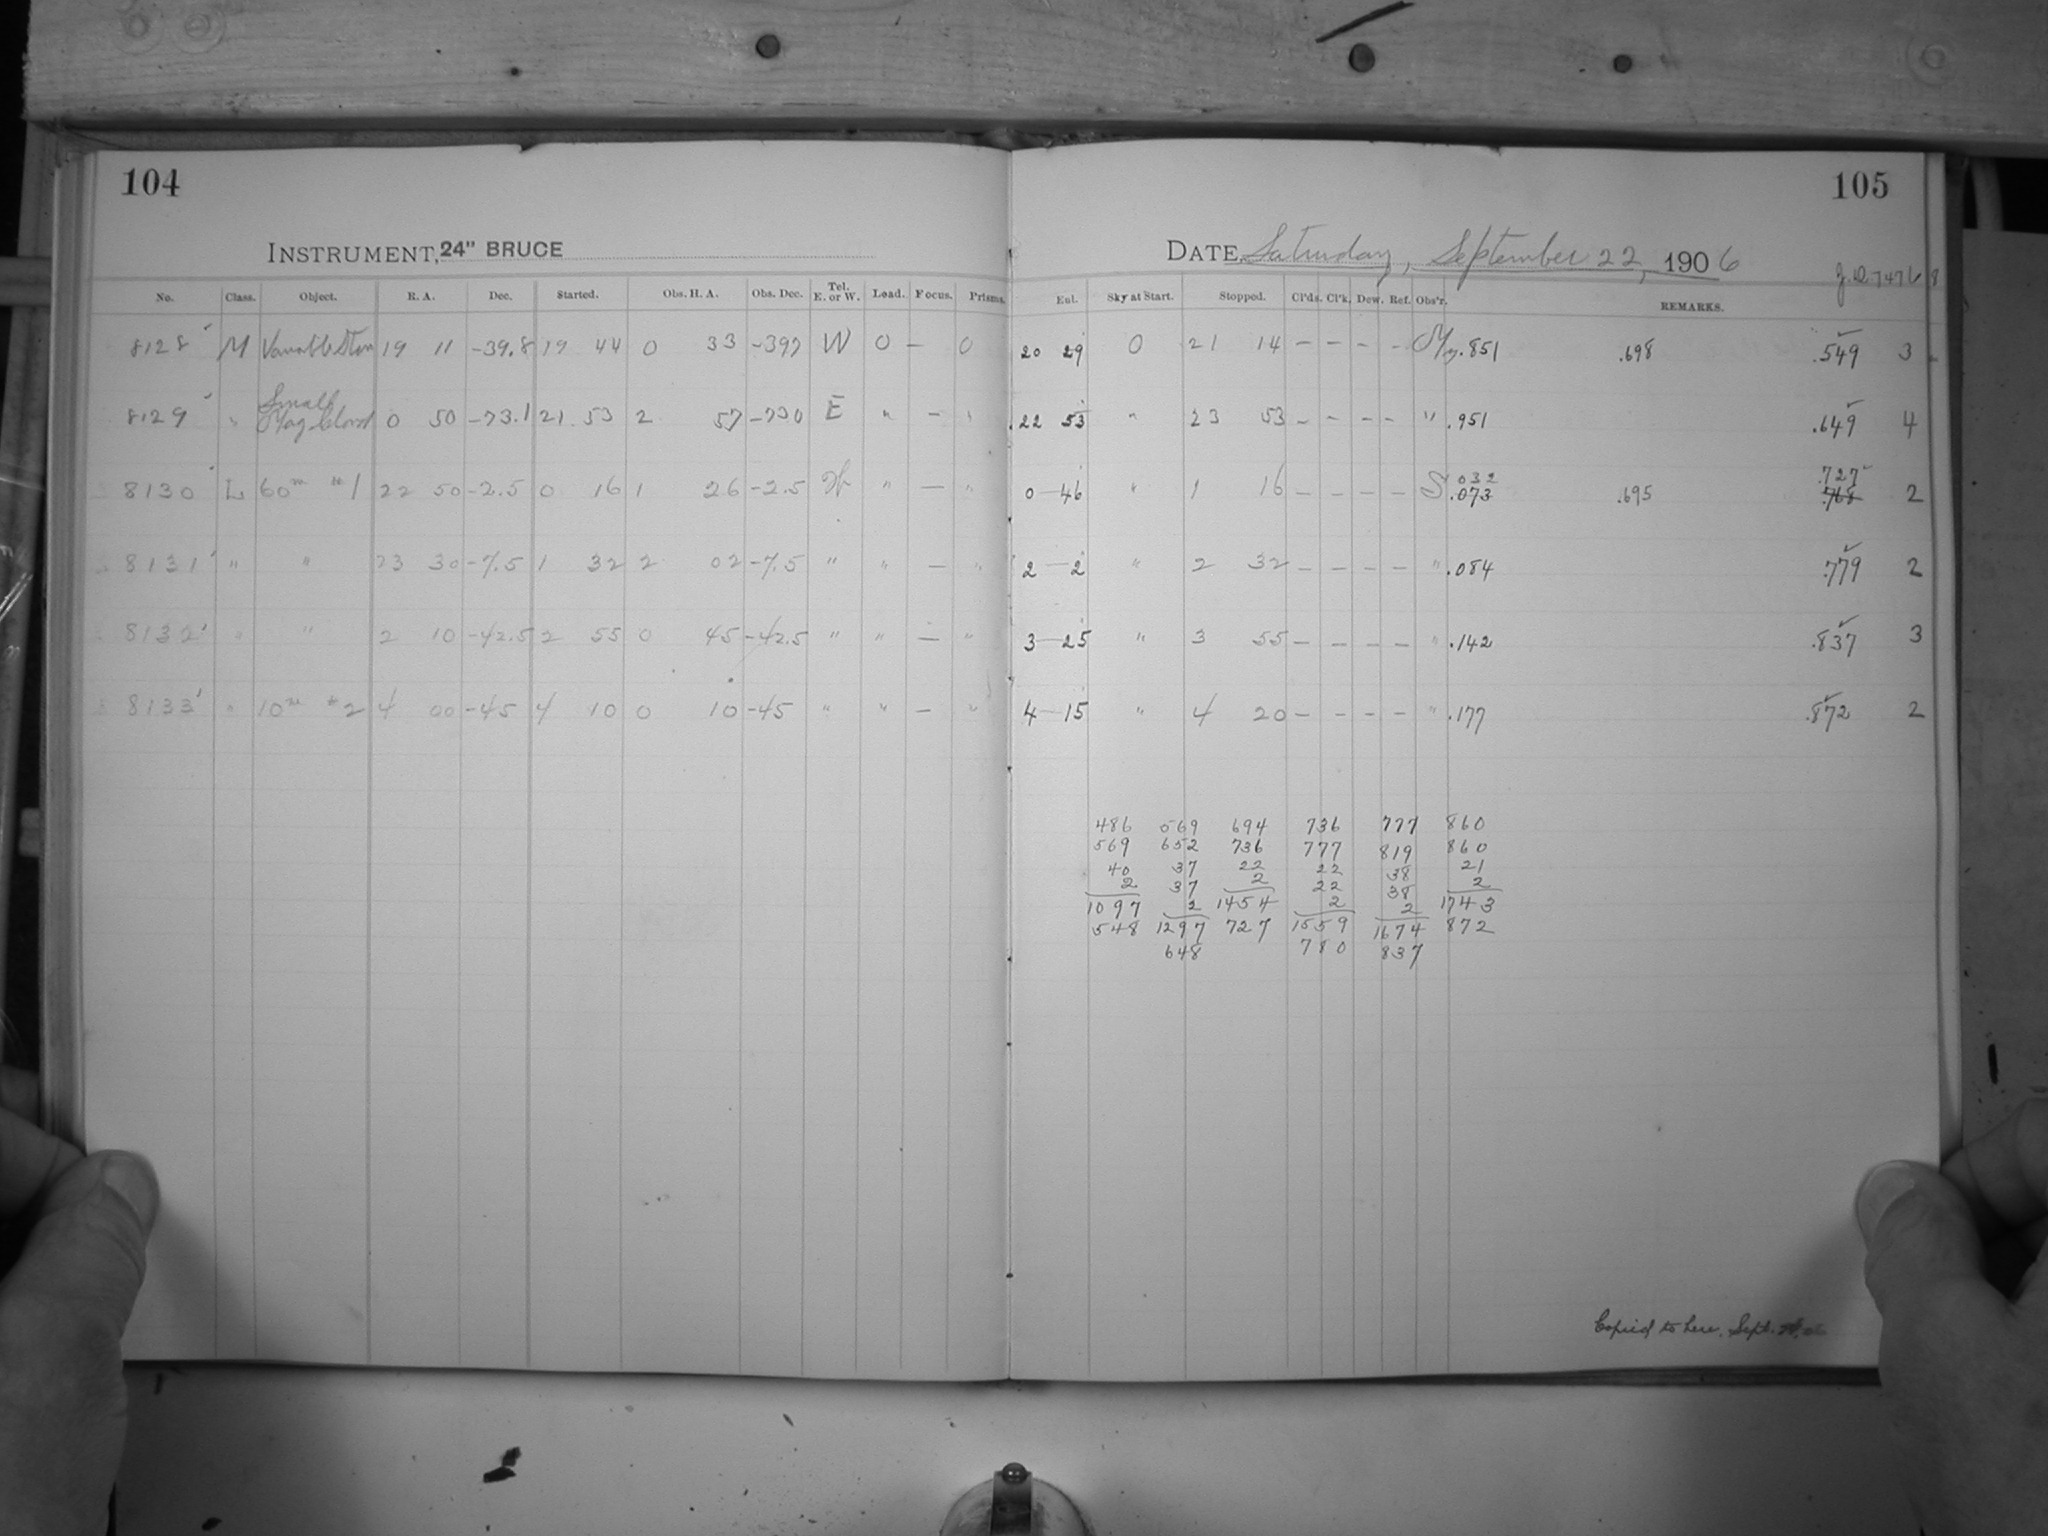 104
INSTRUMENT, 24" BRUCE
No. Class. Object. R. A. Dec. Started. Obs. H. A. Obs. Dec. Tel. E. or W. Load. Focus. Prisms.
8128 M Variable Stars 19 11 -39.8 19 44 0 33 -397 W 0 – 0
8129 " Small Mag. Cloud 0 50 -73.1 21 53 2 57 -730 E " – "
8130 L 60m #1 22 50 -2.5 0 16 1 26 -2.5 W " – "
8131 " " 23 30 -7.5 1 32 2 02 -7.5 " " – "
8132 " " 2 10 -42.5 2 55 0 45 -42.5 " " – "
8133 " 10m #2 4 00 -45 4 10 0 10 -45 " " – "
105
DATE, Saturday, September 22, 1906
J.D. 7476
Eul. Sky at Start. Stopped. Cl'ds. Cl'k. Dew. Ref. Obs'r. REMARKS.
20 29 0 21 14 – – – – .851 .698 .549 3
22 53 " 23 53 – – – – " .951 .649 4
0–46 " 1 16 – – – – S .032 .073 .695 .727 .768 2
2–2 " 2 32 – – – – " .084 .779 2
3–25 " 3 55 – – – – " .142 .837 3
4–15 " 4 20 – – – – " .177 .872 2
486 569 694 736 777 860
569 652 736 777 819 860
40 37 22 22 38 21
2 37 2 22 38 2
1097 2 1454 2 2 1743
548 1297 727 1559 1674 872
648 780 837
Copied to here, Sept.